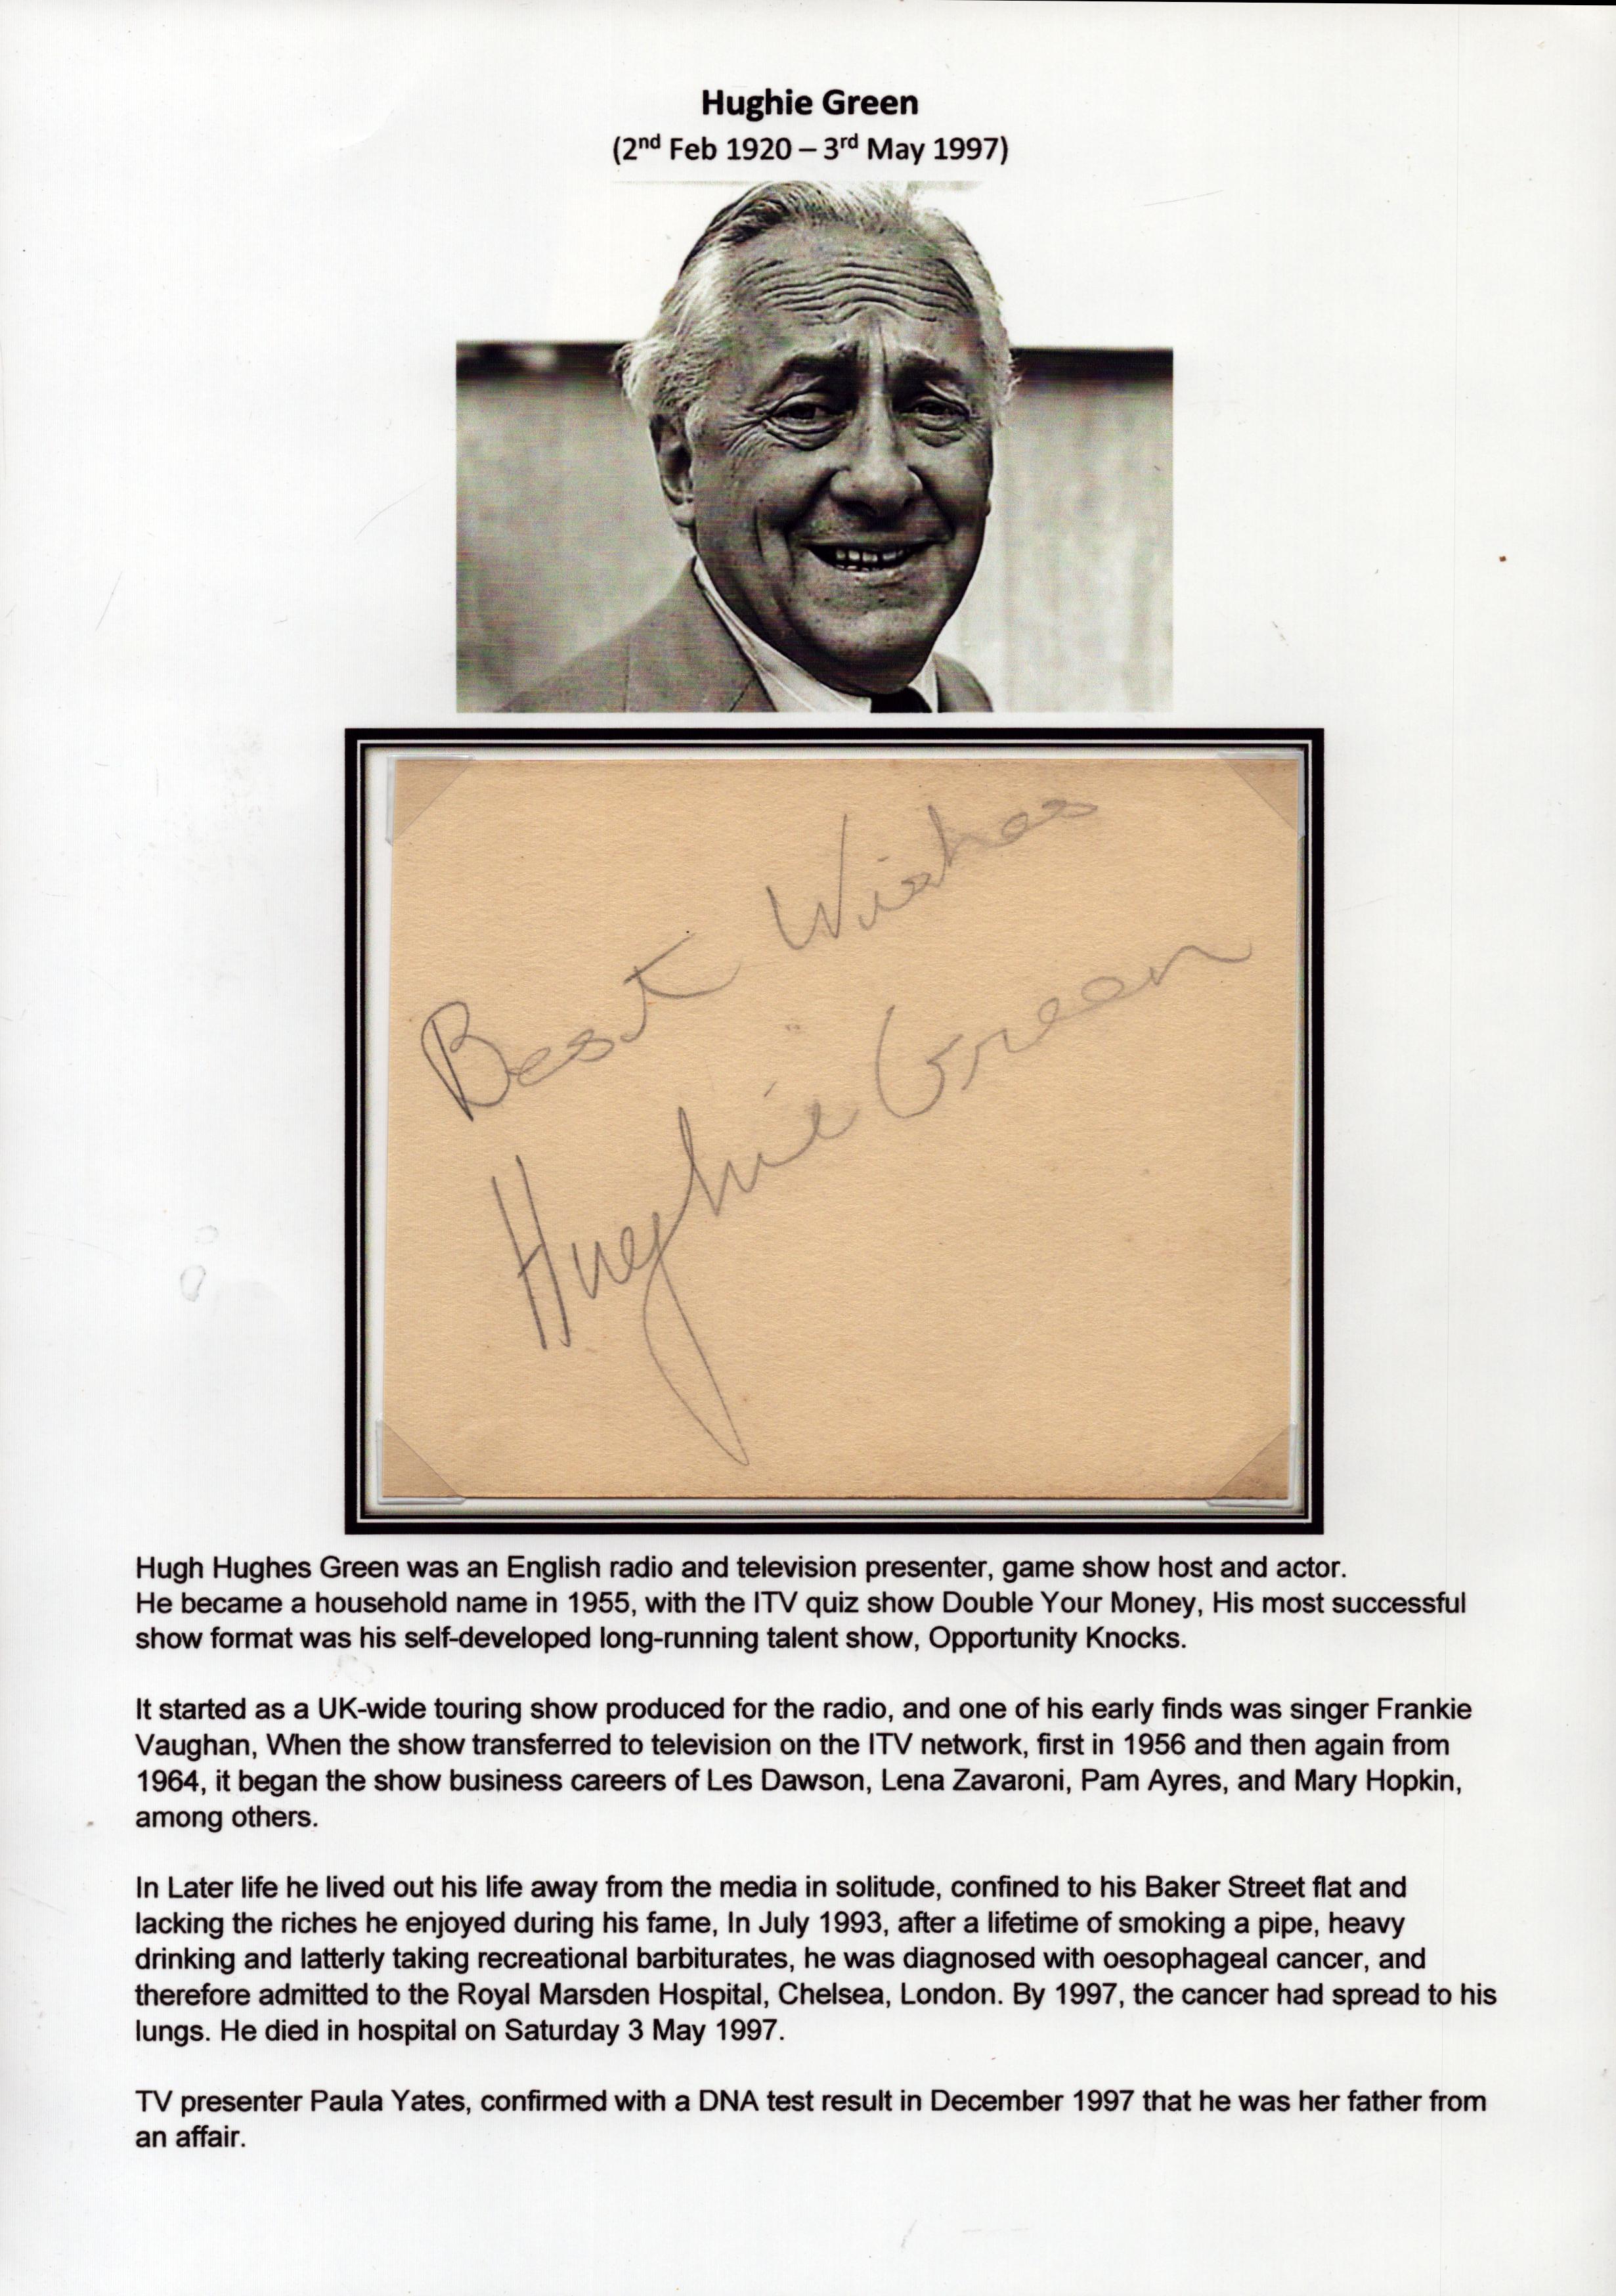 Hughie Green
(2nd Feb 1920 – 3rd May 1997)
Best Wishes
Hughie Green
Hugh Hughes Green was an English radio and television presenter, game show host and actor.
He became a household name in 1955, with the ITV quiz show Double Your Money, His most successful
show format was his self-developed long-running talent show, Opportunity Knocks.
It started as a UK-wide touring show produced for the radio, and one of his early finds was singer Frankie
Vaughan, When the show transferred to television on the ITV network, first in 1956 and then again from
1964, it began the show business careers of Les Dawson, Lena Zavaroni, Pam Ayres, and Mary Hopkin,
among others.
In Later life he lived out his life away from the media in solitude, confined to his Baker Street flat and
lacking the riches he enjoyed during his fame, In July 1993, after a lifetime of smoking a pipe, heavy
drinking and latterly taking recreational barbiturates, he was diagnosed with oesophageal cancer, and
therefore admitted to the Royal Marsden Hospital, Chelsea, London. By 1997, the cancer had spread to his
lungs. He died in hospital on Saturday 3 May 1997.
TV presenter Paula Yates, confirmed with a DNA test result in December 1997 that he was her father from
an affair.